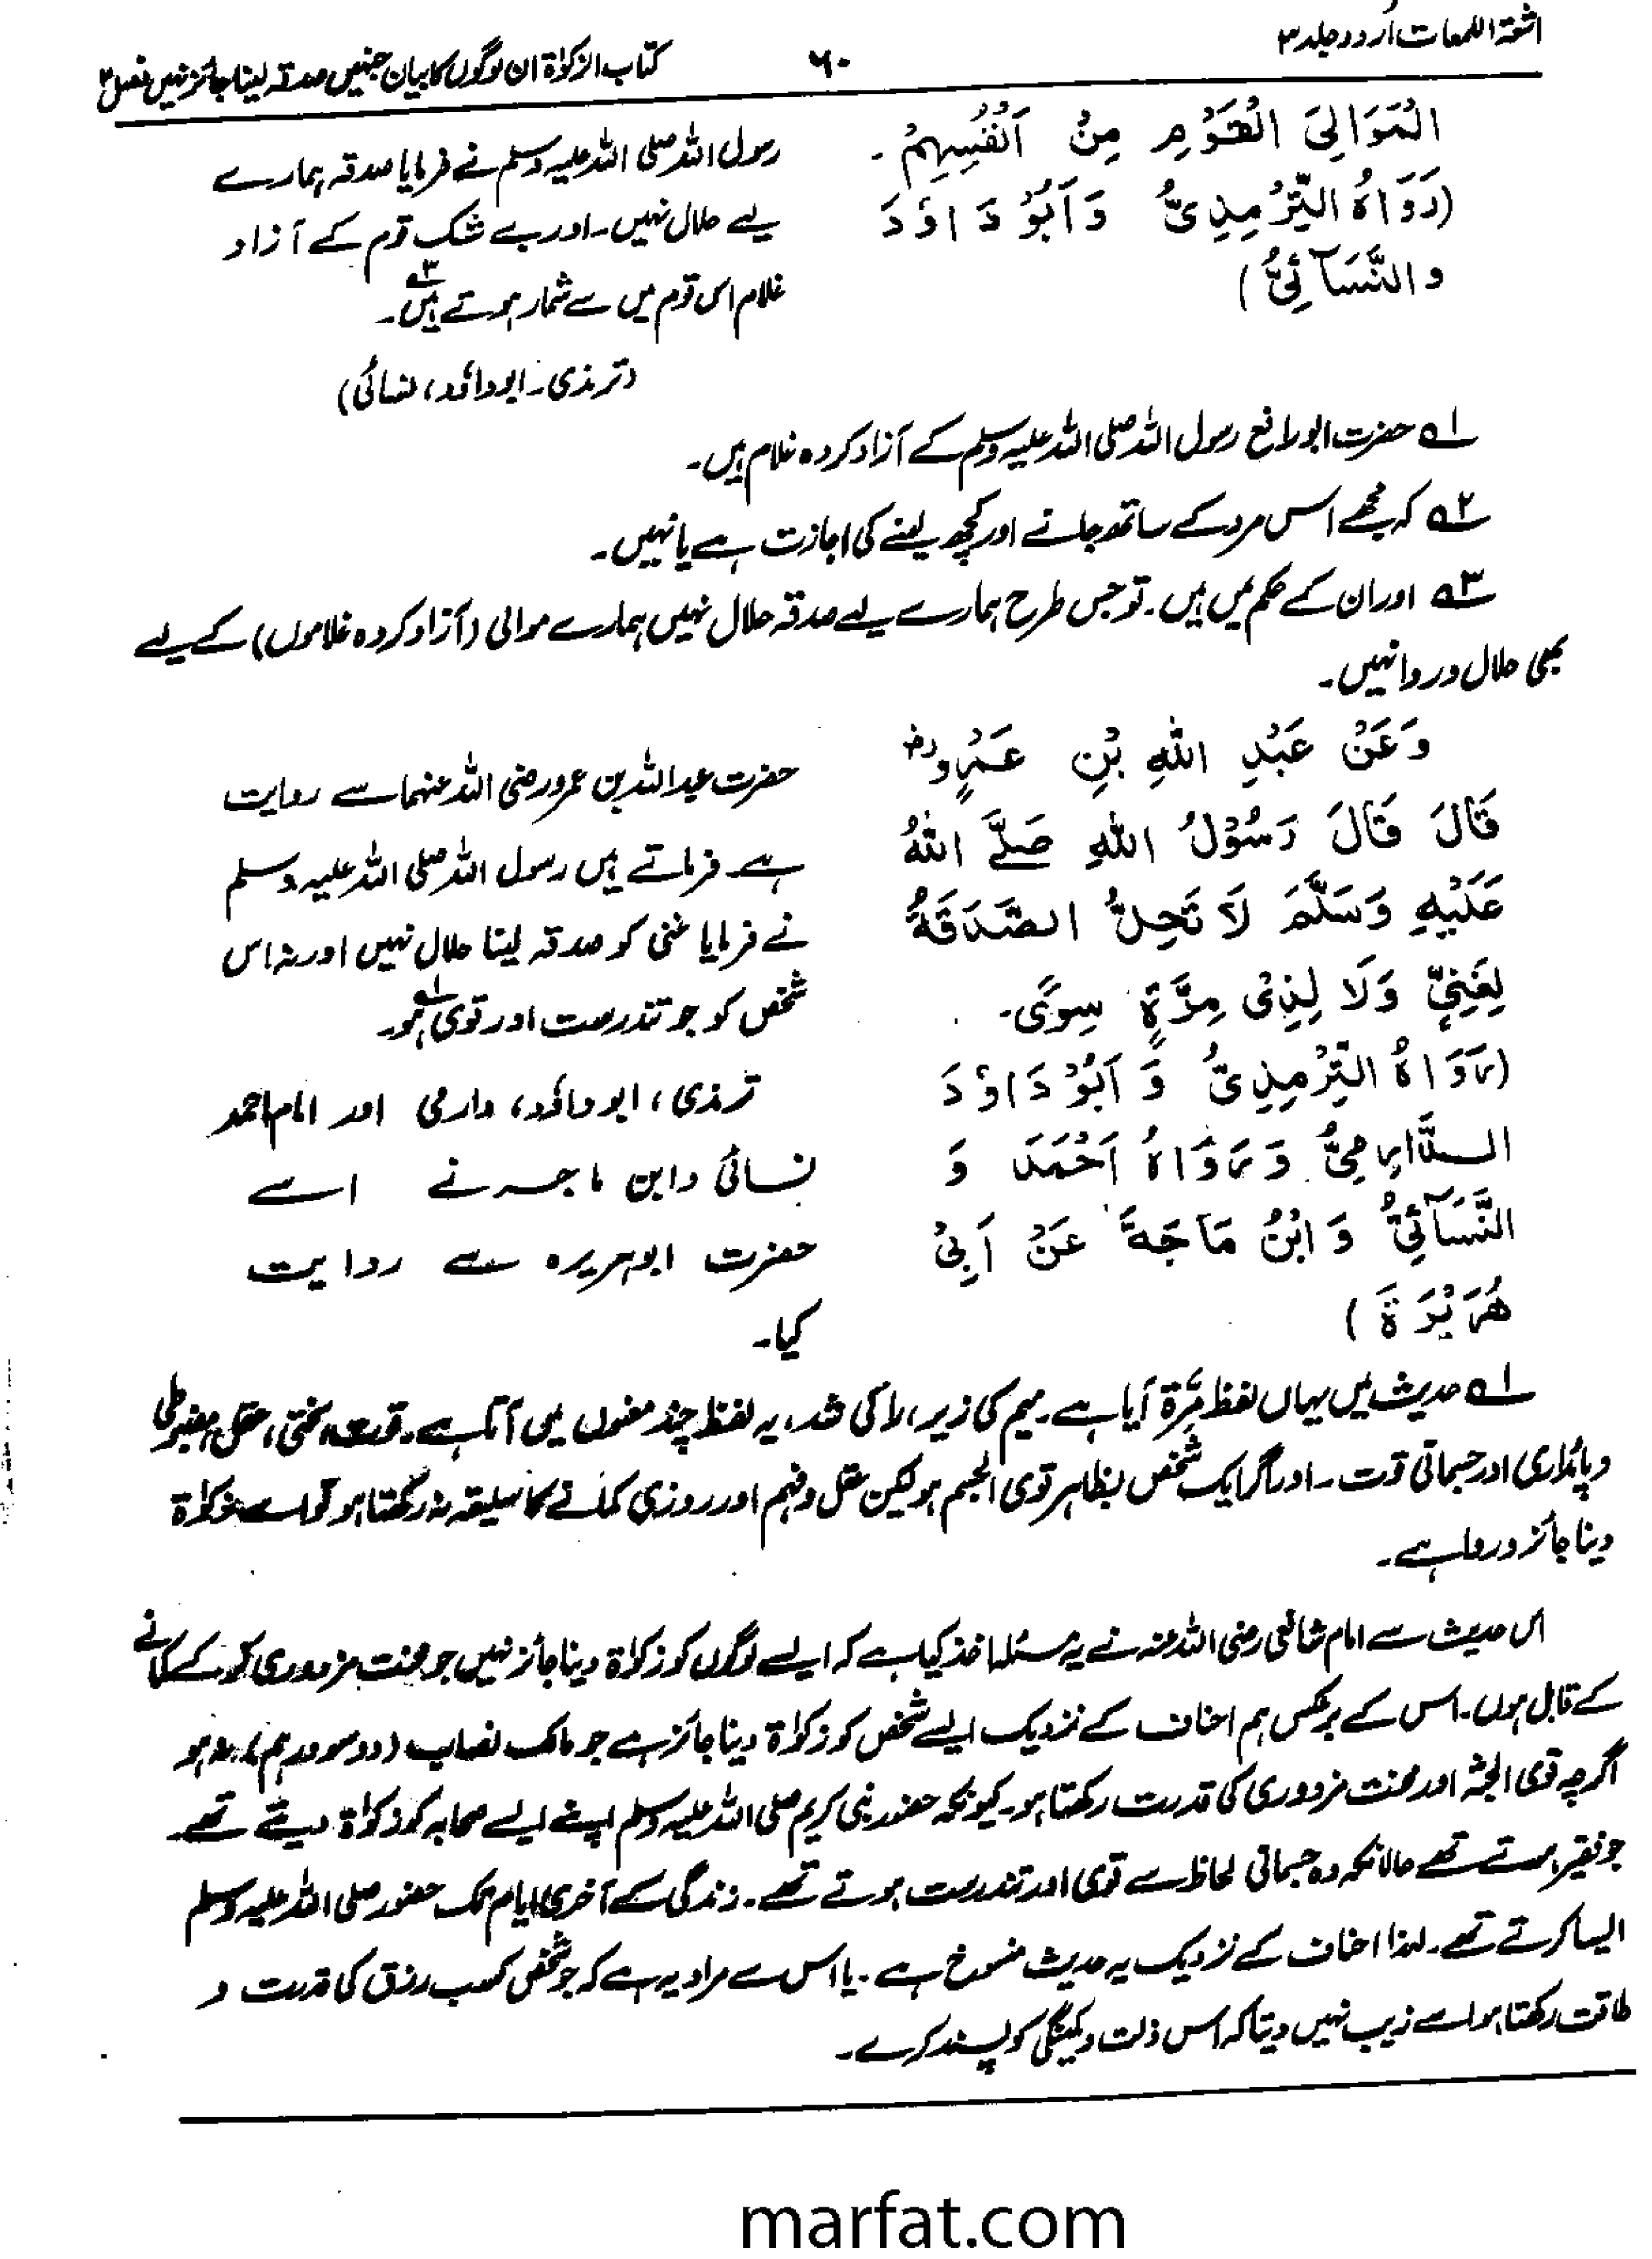 اشعۃ اللمعات اُردو جلد ۳
۶۰
کتاب الزکوٰۃ ان لوگوں کا بیان جنہیں صدقہ لینا جائز نہیں فصل ۲
الْمَوَالِیَ الْقَوْمِ مِنْ اَنْفُسِہِمْ۔
(رَوَاہُ التِّرْمِذِیُّ وَاَبُوْ دَاوٗدَ
وَالنَّسَآئِیُّ)
رسول اللہ صلی اللہ علیہ وسلم نے فرمایا صدقہ ہمارے
لیے حلال نہیں۔ اور بے شک قوم کے آزاد
غلام اس قوم میں سے شمار ہوتے ہیں۳۔
(ترمذی۔ ابوداؤد، نسائی)
۱؎ حضرت ابورافع رسول اللہ صلی اللہ علیہ وسلم کے آزاد کردہ غلام ہیں۔
۲؎ کہ مجھے اس مرد کے ساتھ جانے اور کچھ لینے کی اجازت ہے یا نہیں۔
۳؎ اور ان کے حکم میں ہیں۔ تو جس طرح ہمارے لیے صدقہ حلال نہیں ہمارے موالی (آزاد کردہ غلاموں) کے لیے
بھی حلال و روا نہیں۔
وَعَنْ عَبْدِ اللہِ بْنِ عَمْرٍورض
قَالَ قَالَ رَسُوْلُ اللہِ صَلَّے اللہُ
عَلَیْہِ وَسَلَّمَ لَا تَحِلُّ الصَّدَقَۃُ
لِغَنِیٍّ وَلَا لِذِیْ مِرَّۃٍ سِوِیٍّ۔
(رَوَاہُ التِّرْمِذِیُّ وَ اَبُوْ دَاوٗدَ
الدَّارِمِیُّ وَرَوَاہُ اَحْمَدُ وَ
النَّسَآئِیُّ وَ ابْنُ مَاجَۃَ عَنْ اَبِیْ
ھُرَیْرَۃَ)
حضرت عبداللہ بن عمرو رضی اللہ عنہما سے روایت
ہے۔ فرماتے ہیں رسول اللہ صلی اللہ علیہ وسلم
نے فرمایا غنی کو صدقہ لینا حلال نہیں اور نہ اس
شخص کو جو تندرست اور قوی ہو۱؎۔
ترمذی، ابوداؤد، دارمی اور امام احمد
نسائی وابن ماجہ نے اسے
حضرت ابوہریرہ سے روایت
کیا۔
۱؎ حدیث میں یہاں لفظ مِرَّۃ آیا ہے۔ میم کی زیر، را کی شد، یہ لفظ چند معنوں میں آتا ہے۔ قوت، سختی، عقل، مضبوطی
و پائداری اور جسمانی قوت۔ اور اگر ایک شخص بظاہر قوی الجسم ہو لیکن عقل و فہم اور روزی کمانے کا سلیقہ نہ رکھتا ہو تو اسے زکوٰۃ
دینا جائز و روا ہے۔
اس حدیث سے امام شافعی رضی اللہ عنہ نے یہ مسئلہ اخذ کیا ہے کہ ایسے لوگوں کو زکوٰۃ دینا جائز نہیں جو محنت مزدوری کر کے کمانے
کے قابل ہوں۔ اس کے برعکس ہم احناف کے نزدیک ایسے شخص کو زکوٰۃ دینا جائز ہے جو مالک نصاب (دو سو درہم) نہ ہو
اگرچہ قوی الجثہ اور محنت مزدوری کی قدرت رکھتا ہو۔ کیونکہ حضور نبی کریم صلی اللہ علیہ وسلم اپنے ایسے صحابہ کو زکوٰۃ دیتے تھے۔
جو فقیر ہوتے تھے حالانکہ وہ جسمانی لحاظ سے قوی اور تندرست ہوتے تھے۔ زندگی کے آخری ایام تک حضور صلی اللہ علیہ وسلم
ایسا کرتے تھے۔ لہذا احناف کے نزدیک یہ حدیث منسوخ ہے۔ یا اس سے مراد یہ ہے کہ جو شخص کسب رزق کی قدرت و
طاقت رکھتا ہو اسے زیب نہیں دیتا کہ اس ذلت و کمینگی کو پسند کرے۔
marfat.com